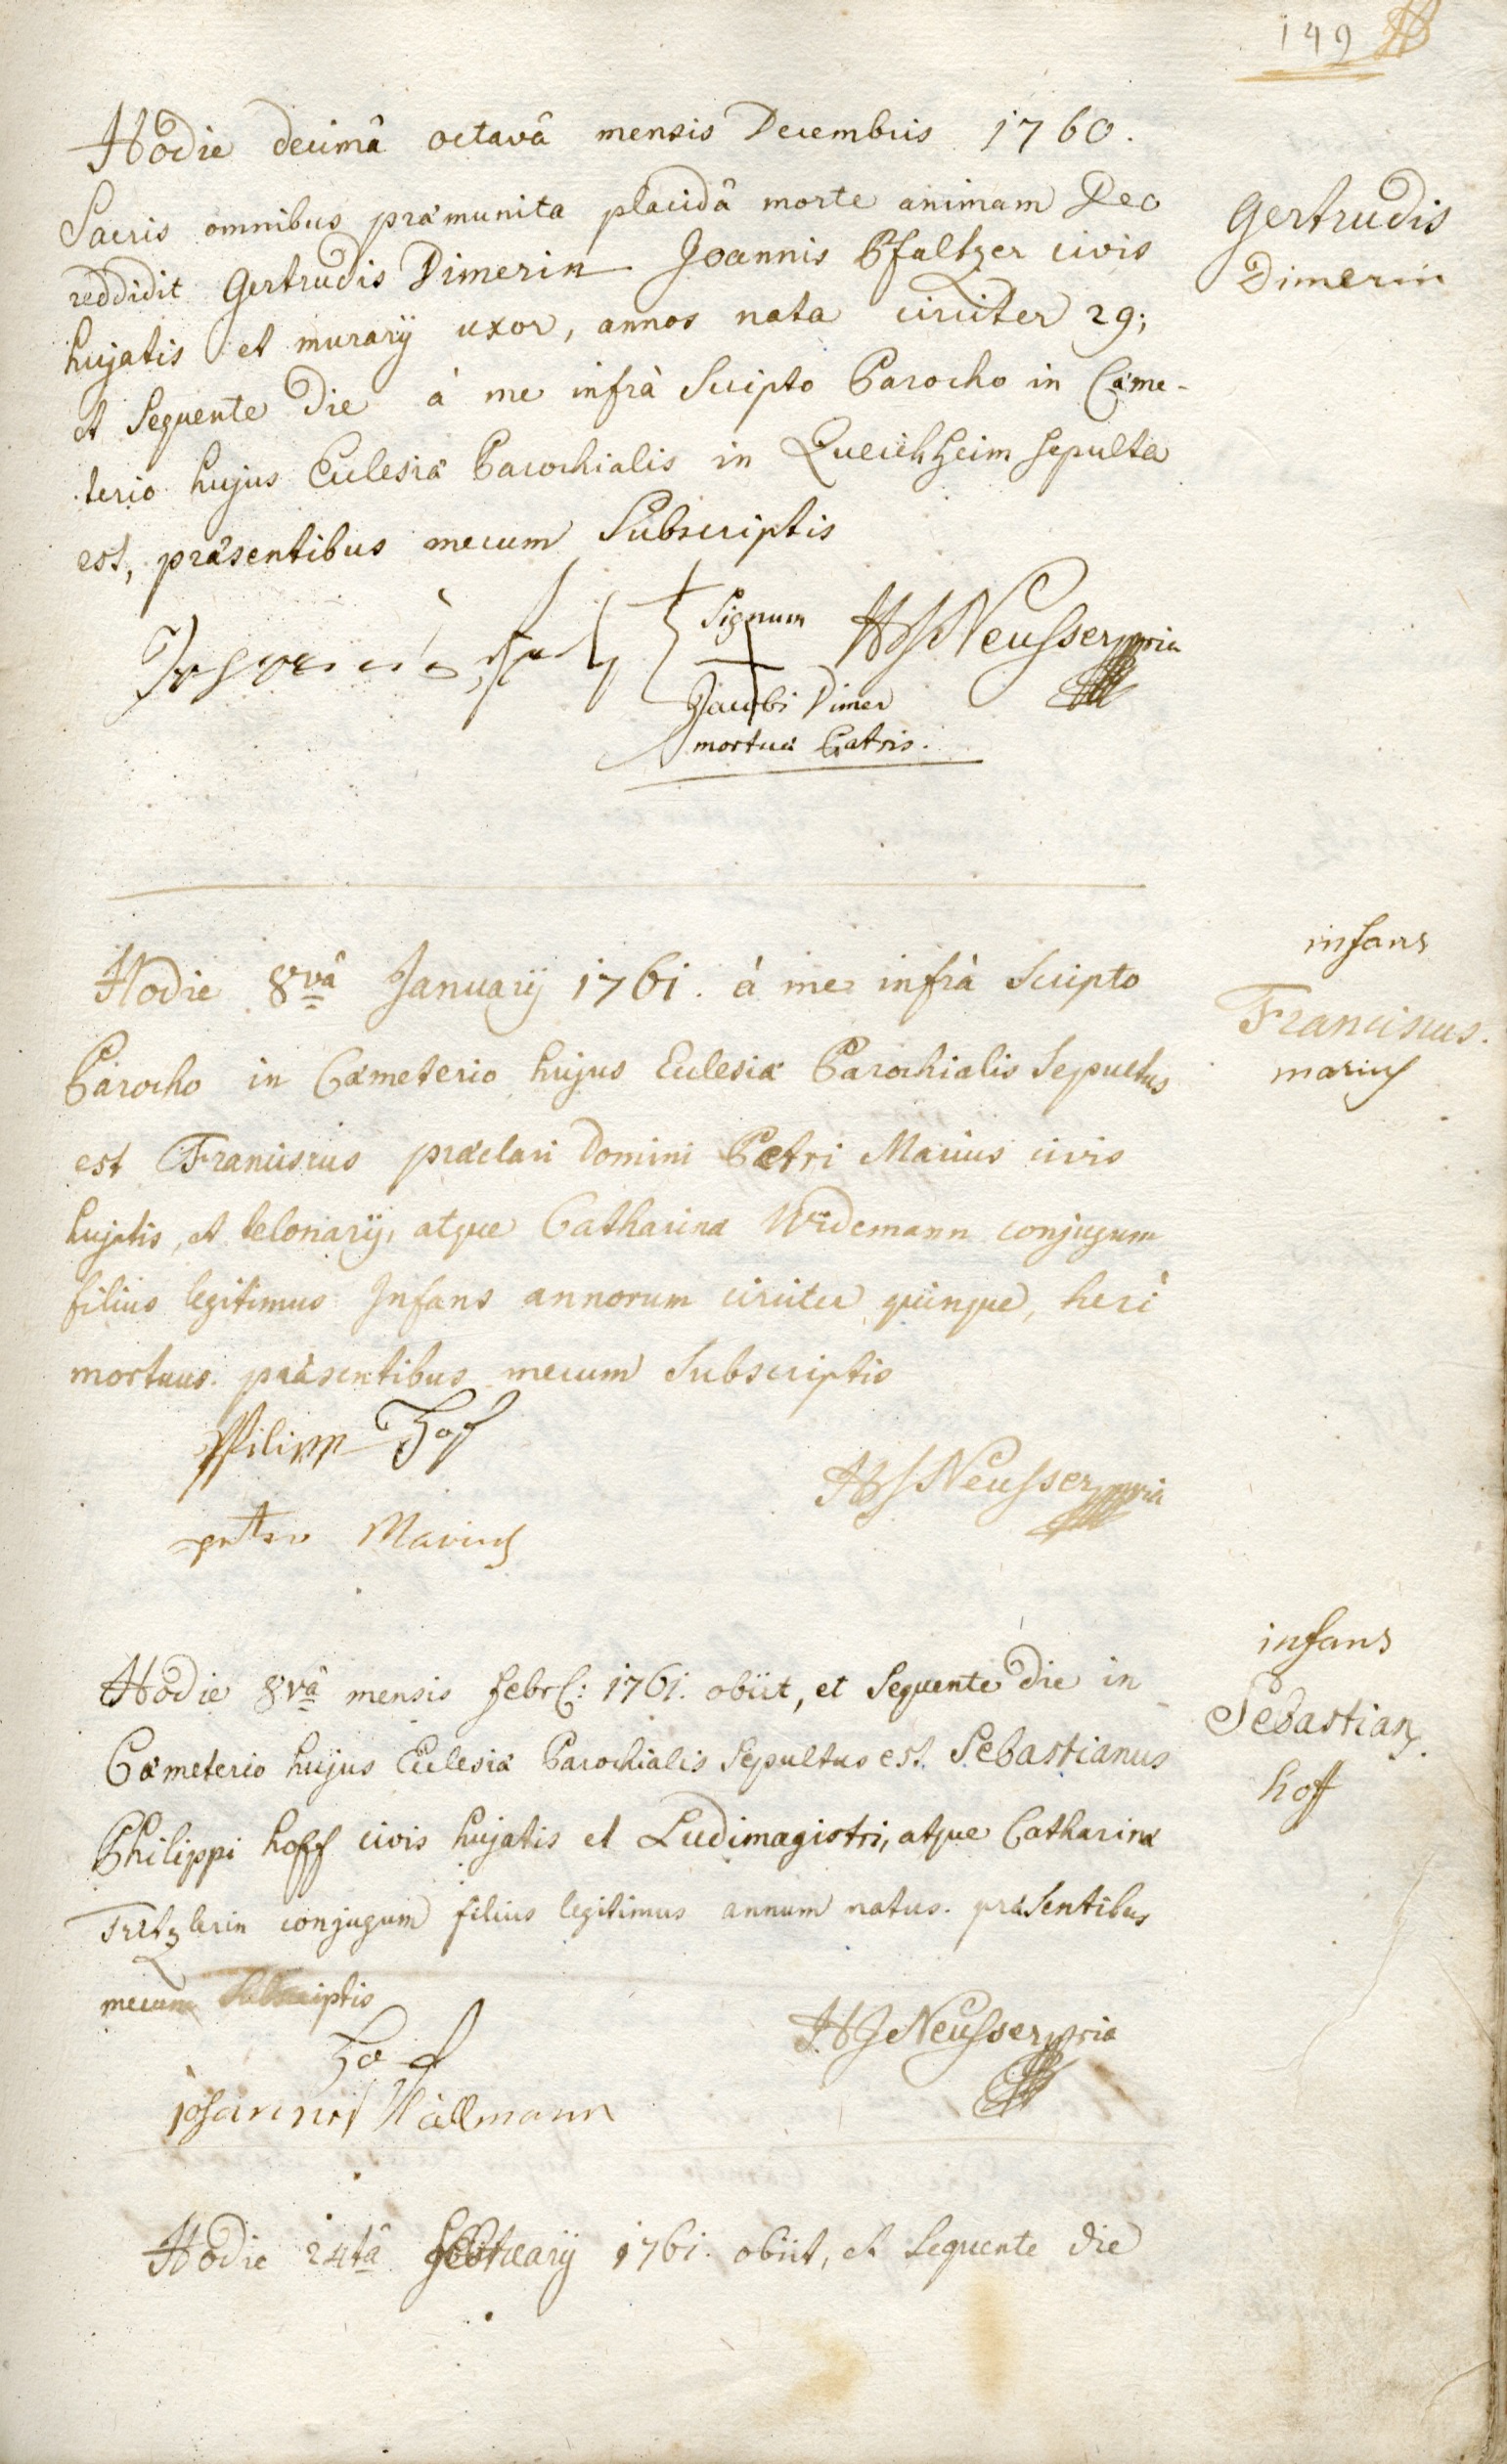 149
Hodie decimâ octavâ mensis Decembris 1760.
Sacris omnibus præmunita placidâ morte animam Deo
reddidit Gertrudis Dimerin Joannis Pfaltzer civis
hujatis et murarij uxor, annos nata circiter 29;
et sequente die à me infrà scripto Parocho in Cæme-
terio hujus Ecclesiæ Parochialis in Queichheim sepulta
est, præsentibus mecum Subscriptis
Gertrudis
Dimerin
Signum
HJNeusser mpria
Jacobi Dimer
mortuæ Patris.
Hodie 8vâ Januarij 1761. à me infrà scripto
Parocho in Cæmeterio hujus Ecclesiæ Parochialis sepultus
est Franciscus præclari Domini Petri Marius civis
hujatis, et telonarij, atque Catharinæ Widemann conjugum
filius legitimus Infans annorum circiter quinque, heri
mortuus. præsentibus mecum subscriptis
infans
Franciscus.
marius
Philipp Hof
HJNeusser mpria
peter Marius
Hodie 8vâ mensis febr: 1761. obiit, et sequente die in
Cæmeterio hujus Ecclesiæ Parochialis sepultus est Sebastianus
Philippi hoff civis hujatis et Ludimagistri, atque Catharinæ
Fritzlerin conjugum filius legitimus annum natus. præsentibus
mecum Subscriptis
infans
Sebastian,
hoff
Hof
HJNeusser mpria
Hallmann
Hodie 24tâ februarij 1761. obiit, et sequente die